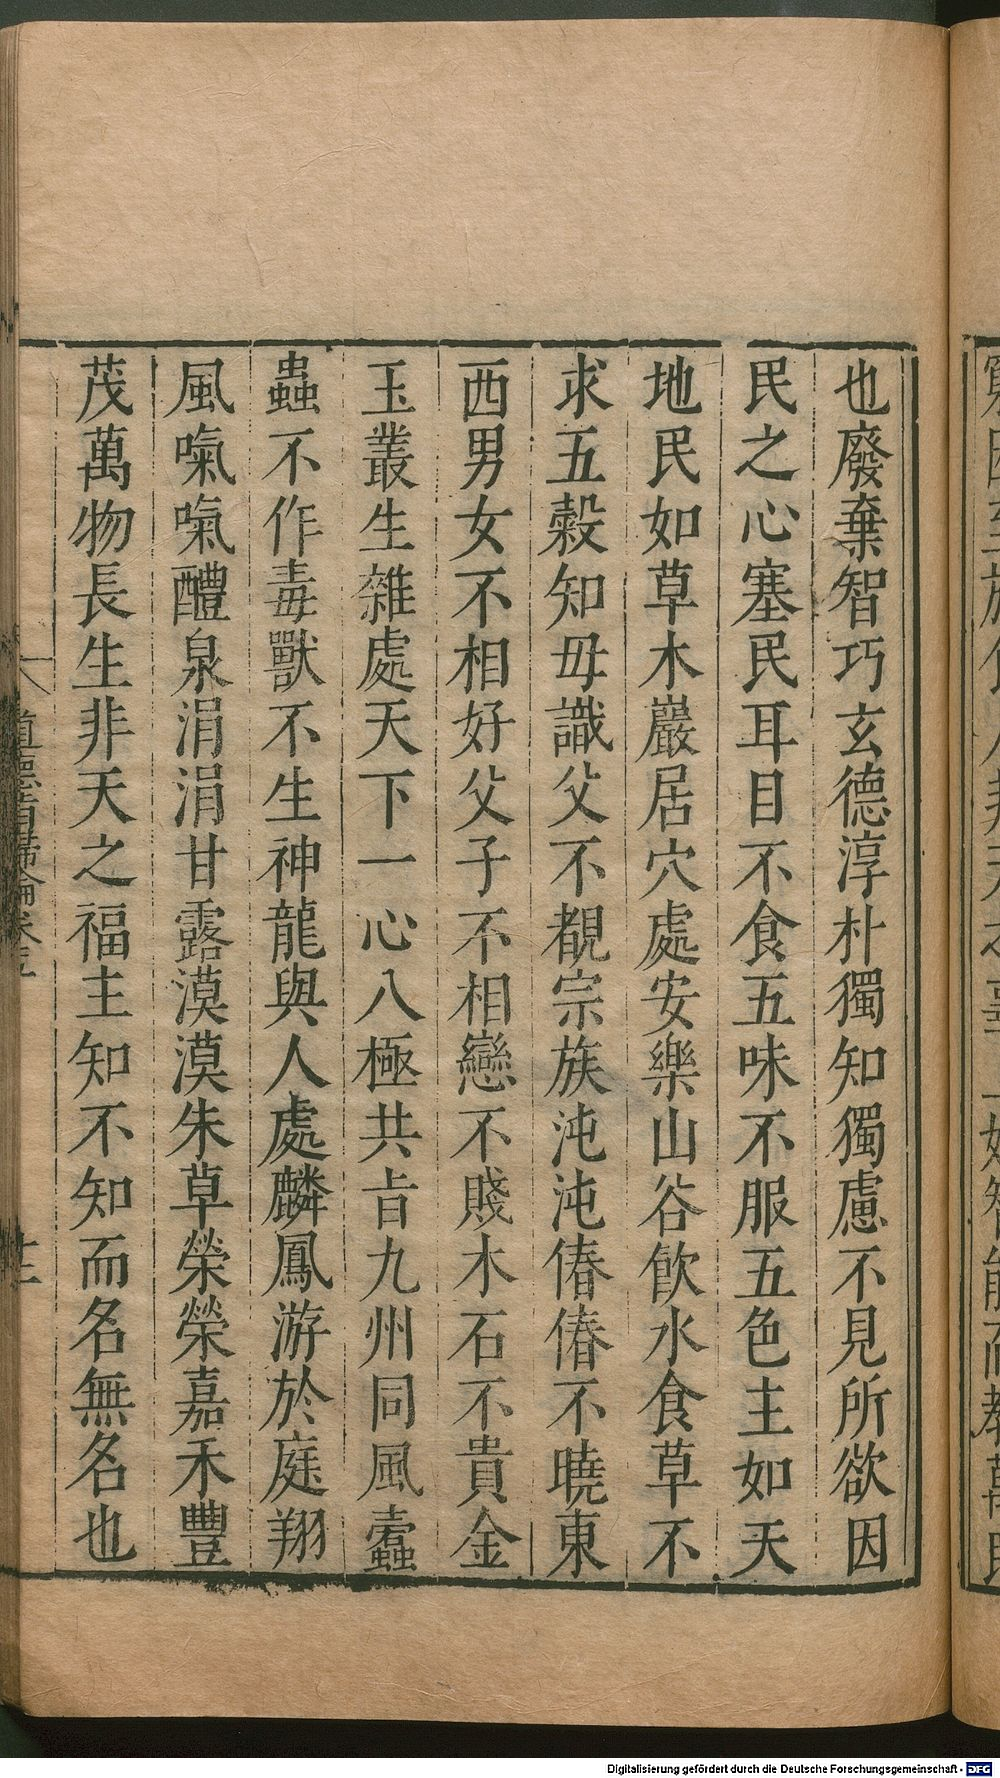 也廢棄智巧玄德淳朴獨知獨慮不見所欲因
民之心塞民耳目不食五味不服五色主如天
地民如草木巖居穴處安樂山谷飲水食草不
求五穀知毋識父不覩宗族沌沌偆偆不曉東
西男女不相好父子不相戀不賤木石不貴金
玉叢生雜處天下一心八極共旨九州同風蠹
蟲不作毒獸不生神龍與人處麟鳳游於庭翔
風噏噏醴泉涓涓甘露漠漠朱草榮榮嘉禾豐
茂萬物長生非天之福主知不知而名無名也
道德指歸論卷五
十二
Digitalisierung gefördert durch die Deutsche Forschungsgemeinschaft - DFG